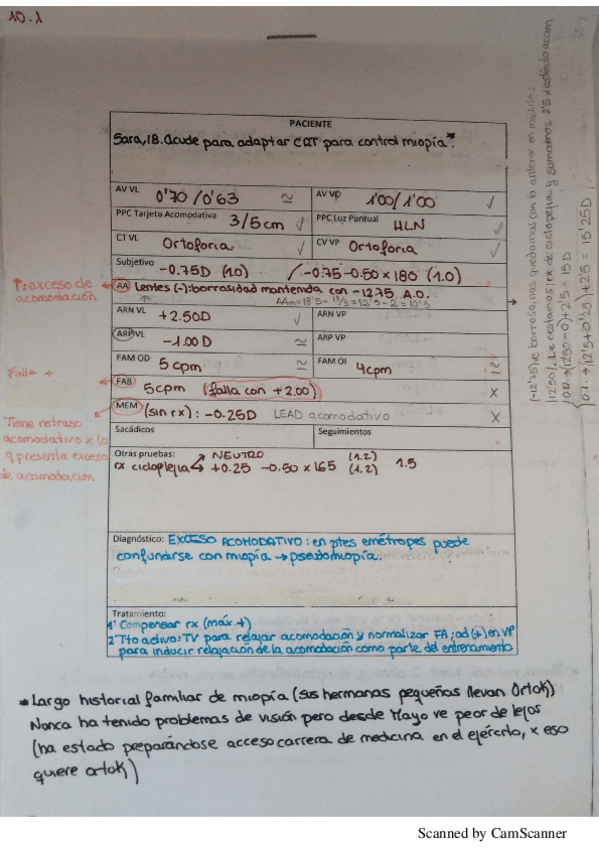 10.1
PACIENTE
Sara, 18. Acude para adaptar CRT para control miopía*.
AV VL 0'70 / 0'63 ≈ AV VP 1'00/1'00 ✓
PPC Tarjeta Acomodativa 3/5cm ✓ PPC Luz Puntual HLN ✓
CT VL Ortoforia ✓ CV VP Ortoforia ✓
Subjetivo -0.75D (1.0) / -0.75-0.50 x 180 (1.0)
AA Lentes (-): borrosidad mantenida con -12.75 A.O.
↑ AAm = 18'5 - 18/3 = 12'5 - 2 = 10'5
ARN VL +2.50D ✓ ARN VP
ARP VL -1.00D ≈ ARP VP
FAM OD 5cpm ≈ FAM OI 4cpm ≈
FAB 5cpm (falla con +2.00) X
MEM (sin rx): -0.25D LEAD acomodativo X
Sacádicos Seguimientos
Otras pruebas: → NEUTRO (1.2) 1.5
rx cicloplejia → +0.25 -0.50 x 165 (1.2)
Diagnóstico: EXCESO ACOMODATIVO: en ptes emétropes puede
confundirse con miopía → pseudomiopía.
Tratamiento:
1º Compensar rx (máx. +)
2º Tto activo: TV para relajar acomodación y normalizar FA; ad (+) en VP
para inducir relajación de la acomodación como parte del entrenamiento
T: exceso de
acomodación
Falla +
Tiene retraso
acomodativo x lo
q presenta exceso
de acomodación
(-12'75) ve borroso, nos quedamos con lo anterior en módulo:
12'50/. Le restamos rx de cicloplejia y sumamos 2'5 distancia acom
OD → (12'50-0)+2'5 = 15D
OI → (12'5+0'25)+2'5 = 15'25D
* Largo historial familiar de miopía (sus hermanas pequeñas llevan OrtoK)
Nunca ha tenido problemas de visión pero desde Mayo ve peor de lejos
(ha estado preparándose acceso carrera de medicina en el ejército, x eso
quiere ortoK)
Scanned by CamScanner